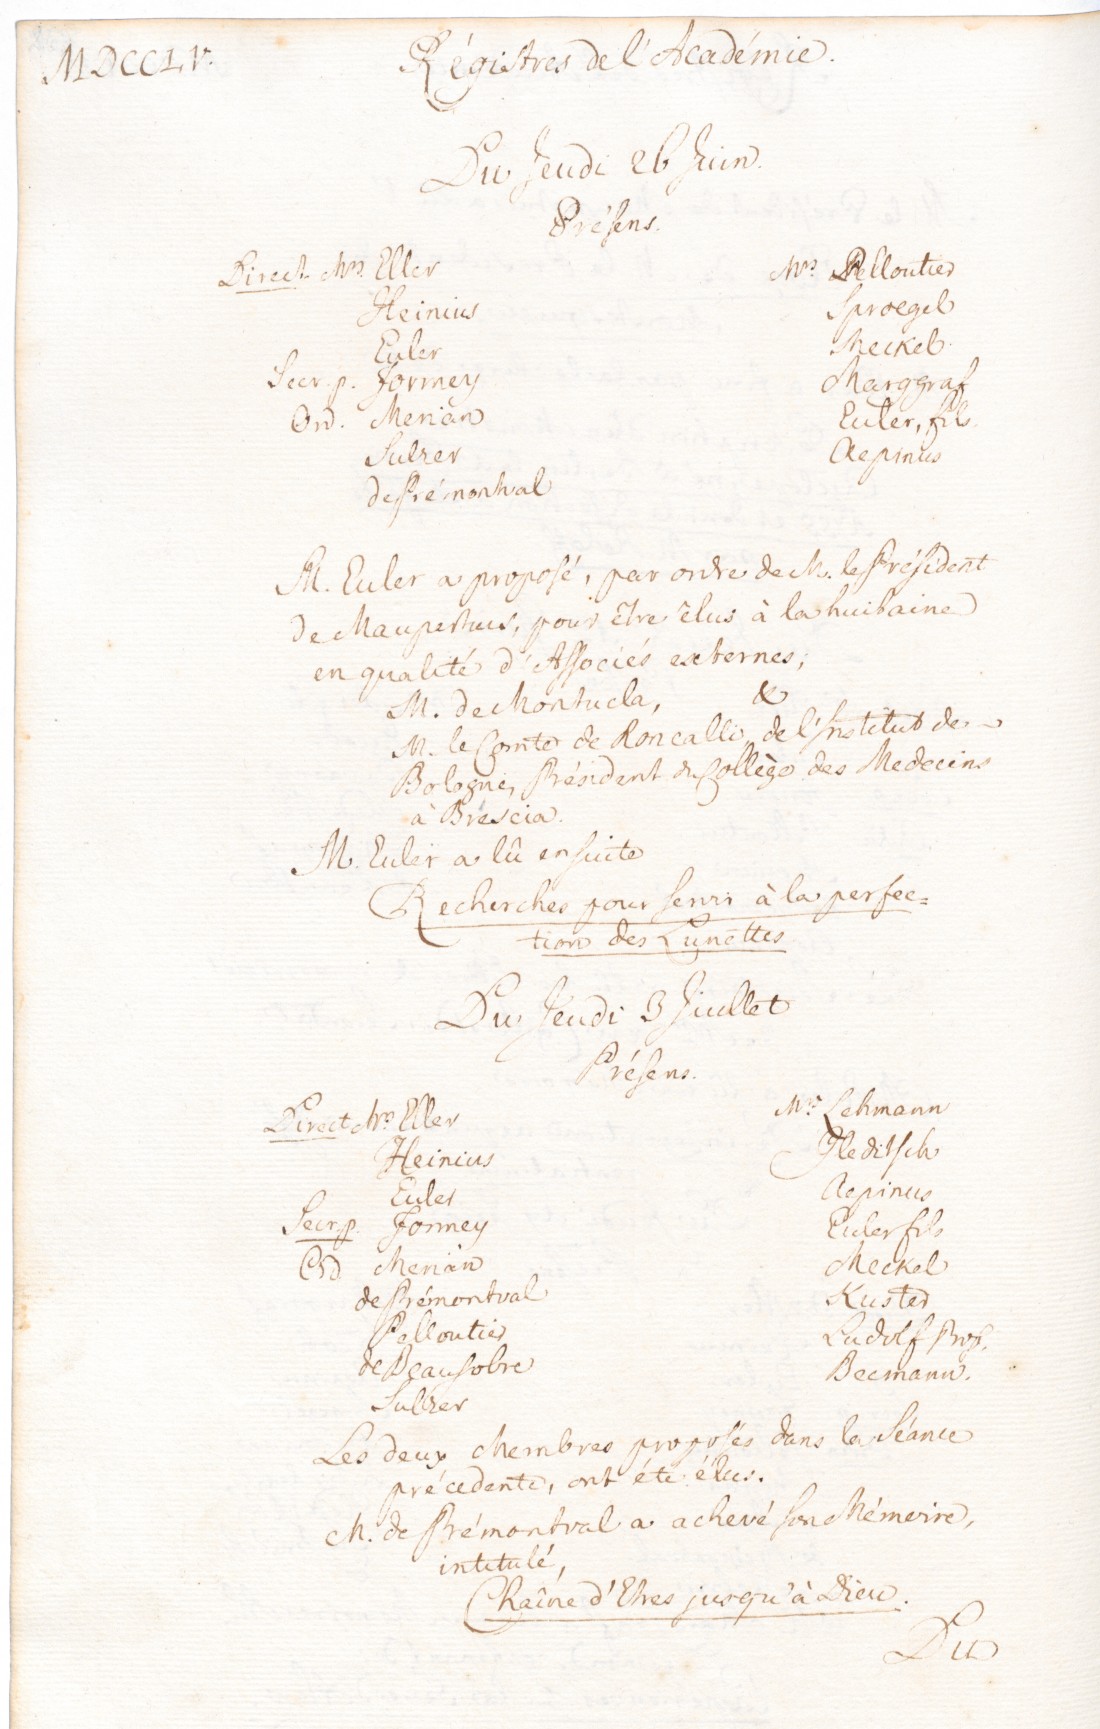 MDCCLV.
Régistres de l'Académie.
Du Jeudi 26 Juin.
Présens.
Direct. Mrs. Eller
Heinius
Euler
Secr. p. Formey
Ord. Merian
Sulzer
de Prémontval
Mrs. Pelloutier
Sproegel
Meckel.
Marggraf
Euler, fils.
Aepinus
M. Euler a proposé, par ordre de M. le Président
de Maupertuis, pour être élus à la huitaine
en qualité d'Associés externes;
M. de Montucla, &
M. le Comte de Roncalli, de l'Institut de
Bologne, Président du Collège des Medecins
à Brescia.
M. Euler a lû ensuite
Recherches pour servir à la perfec=
tion des Lunettes
Du Jeudi 3 Juillet
Présens.
Direct. Mrs. Eller
Heinius
Euler
Secr. p. Formey
Ord Merian
de Prémontval
Pelloutier
de Beausobre
Sulzer
Mrs. Lehmann
Gleditsch
Aepinus
Euler fils
Meckel
Kuster
Ludolf Prof.
Becmann.
Les deux Membres proposés dans la Séance
précedente, ont été élus.
M. de Prémontval a achevé son Mémoire,
intitulé,
Chaîne d'Etres jusqu'à Dieu.
Du